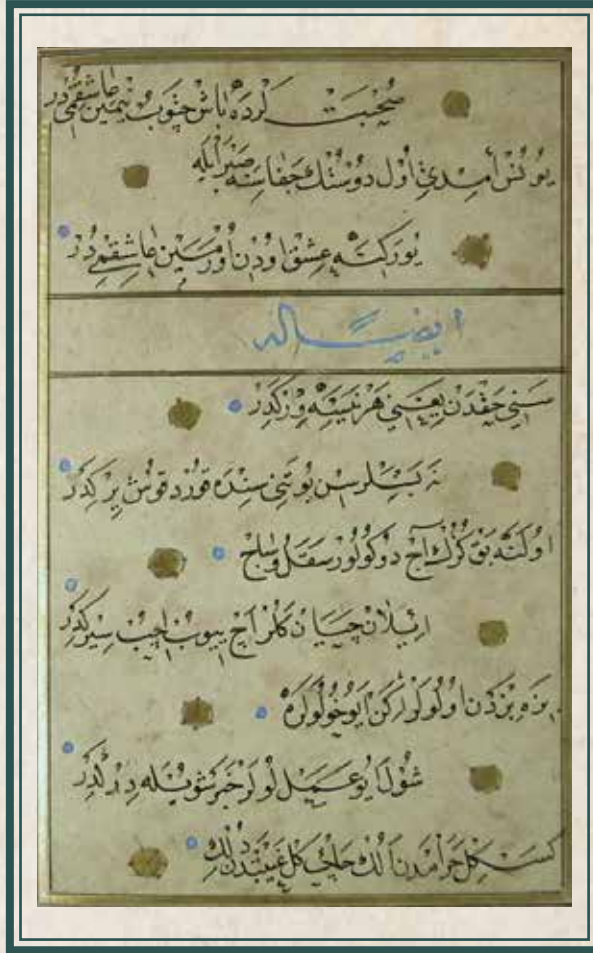 صحبت لرده باش چتوب یمین عاشقمی در
یونس امدی اول دوستك جفاسنه صبر ایله
یورکته عشق اودن اورمین عاشقمی در
ایضا له
سنی حقدن یغنی هر نسنه ورکدر
نه بسلرسن بو تنی سنده قورد قوش یر کدر
اولنه بق کزك آچ دوکولور سقل و ساچ
ییلان چیان کلر آچ ییوب ایچب سیر کدر
بزه بزدن اولولر ایو خولولره
شول ایو عمللولر خبر شویله در لدر
کسب کل حرامدن الك چك کل غیبتدن دلك